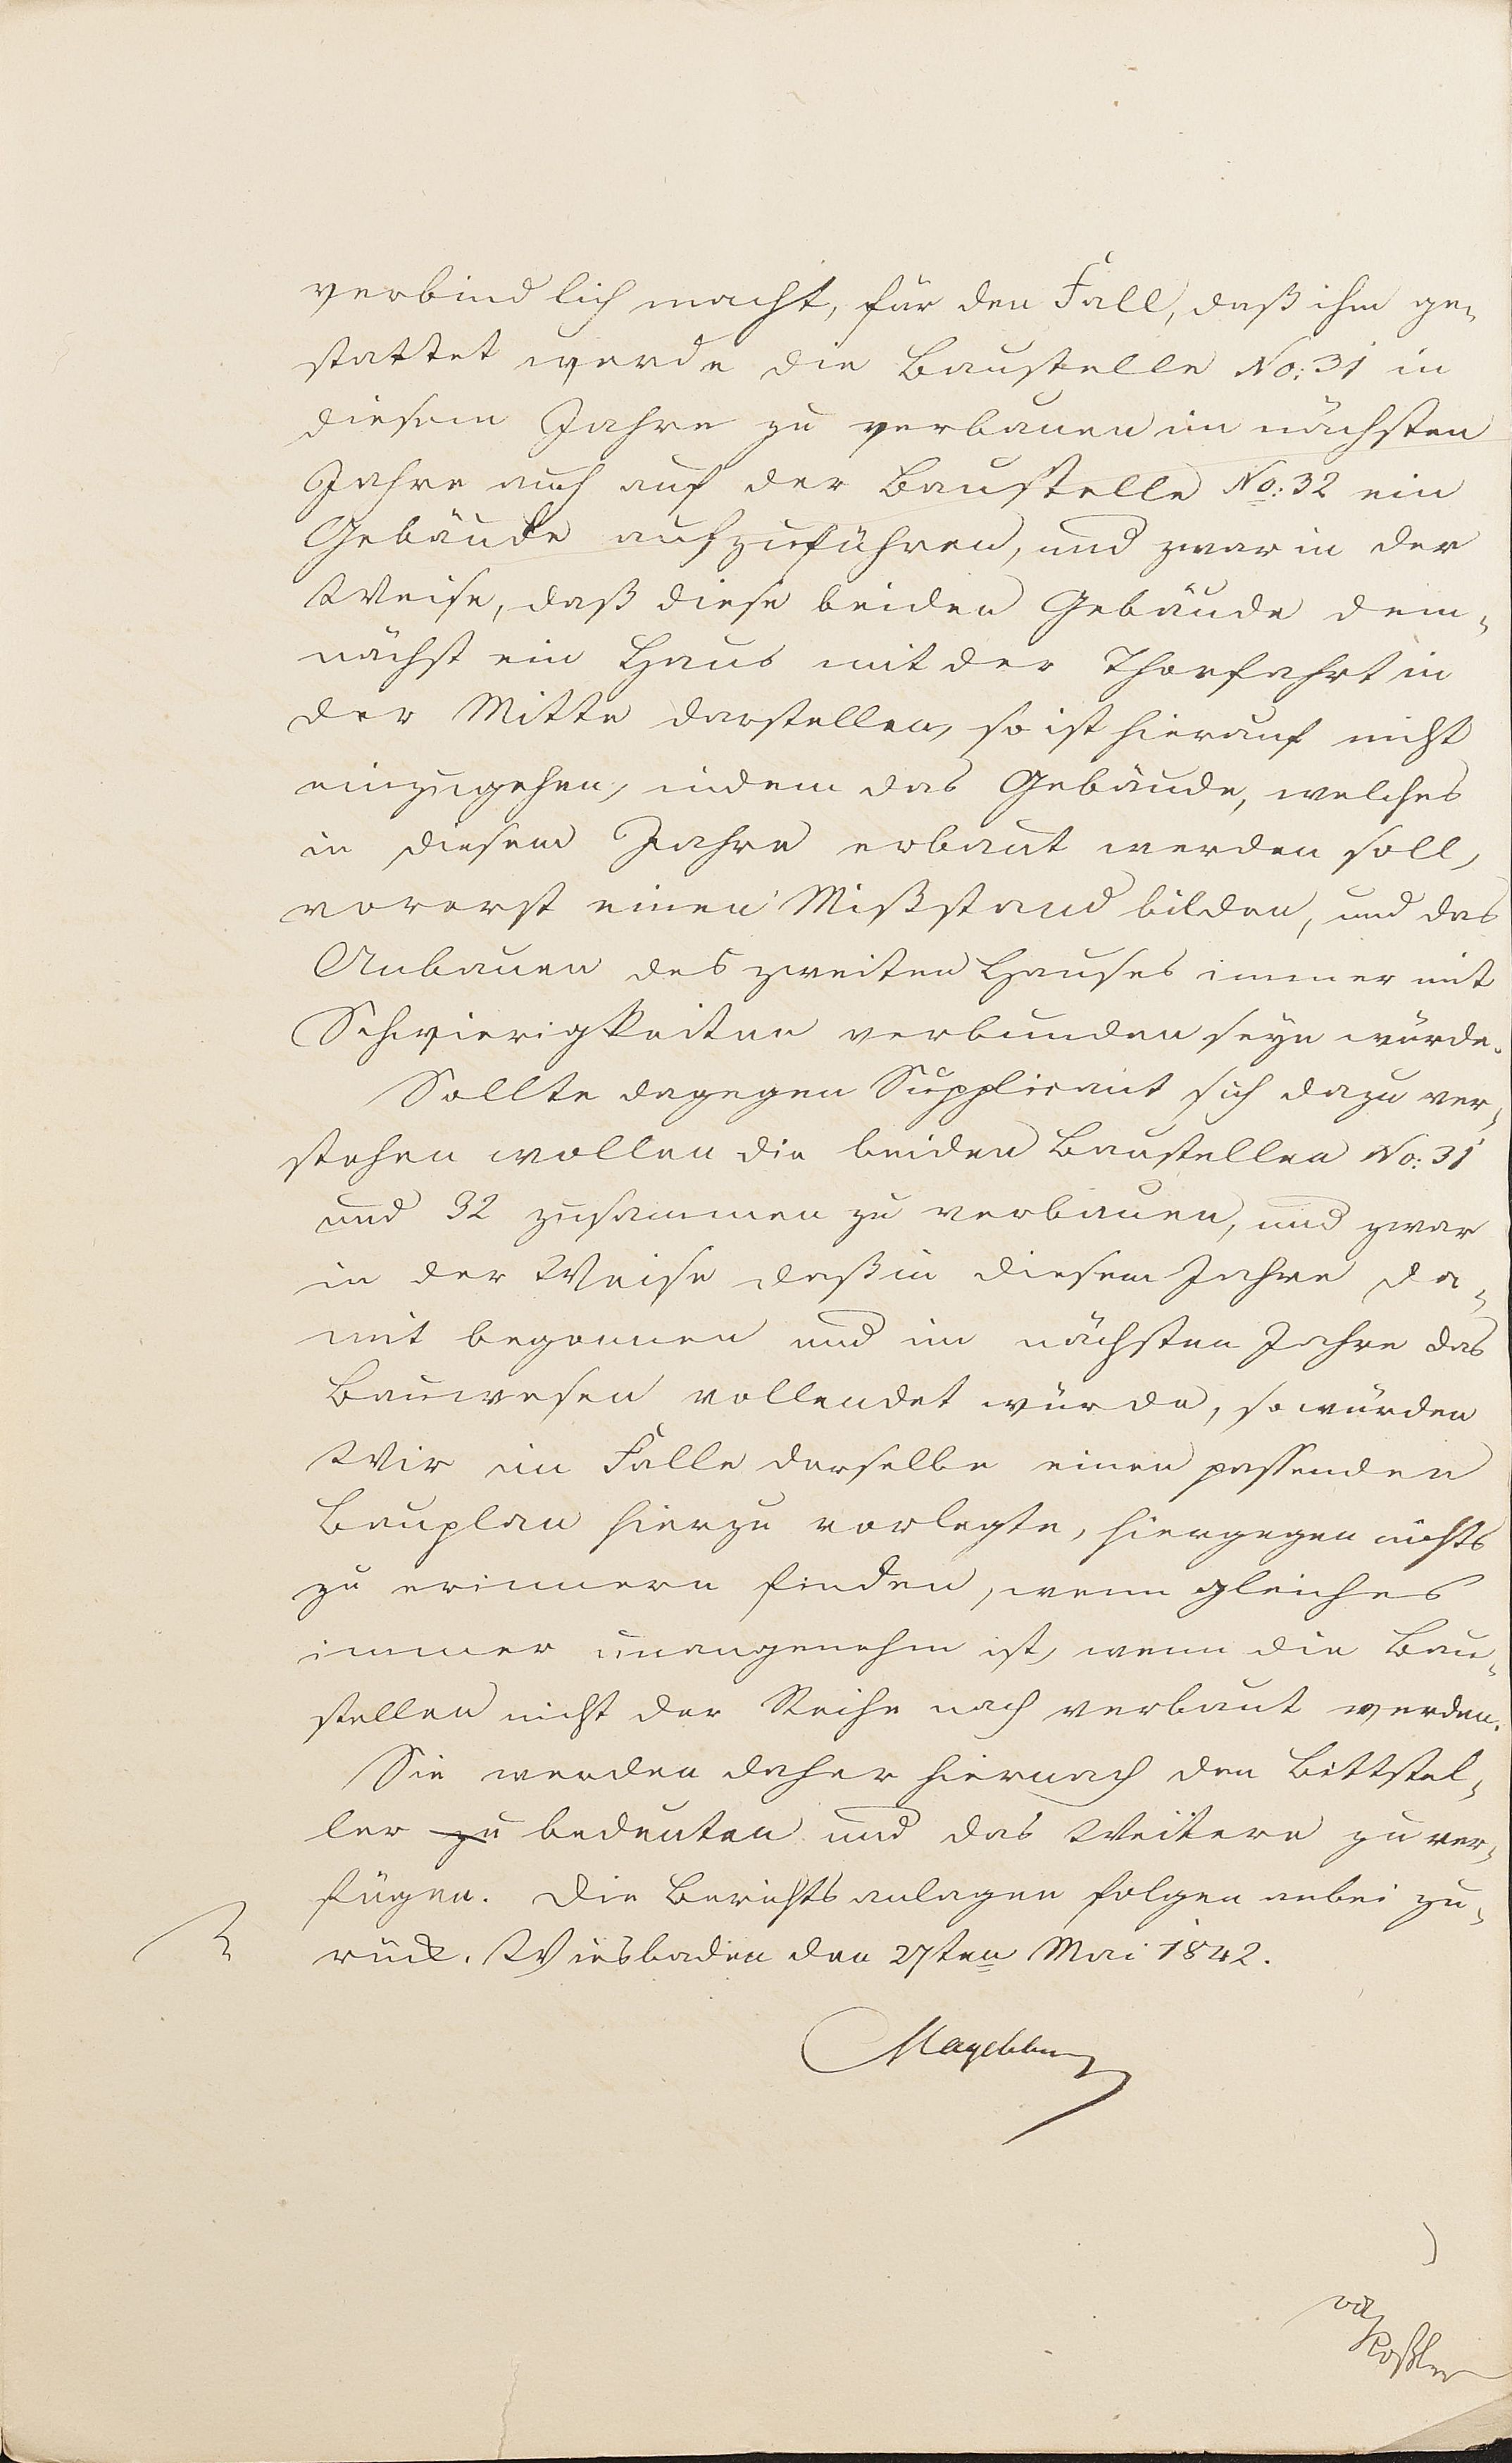 verbindlich macht, für den Fall, daß ihm ge-
stattet werde die Baustelle No: 31 in
diesem Jahre zu verbauen im nächsten
Jahre auch auf der Baustelle No: 32 ein
Gebäude aufzuführen, und zwar in der
Weise, daß diese beiden Gebäude dem-
nächst ein Haus mit der Thorfahrt in
der Mitte darstellen, so ist hierauf nicht
einzugehen, indem das Gebäude, welches
in diesem Jahre erbaut werden soll,
vorerst einen Mißstand bilden, und das
Anbauen des zweiten Hauses immer mit
Schwierigkeiten verbunden seyn würde.
Sollte dagegen Supplicant sich dazu ver-
stehen wollen die beiden Baustellen No: 31
und 32 zusammen zu verbauen, und zwar
in der Weise daß in diesem Jahre da-
mit begonnen und im nächsten Jahre das
Bauwesen vollendet würde, so würden
Wir im Falle derselbe einen passenden
Bauplan hierzu vorlegte, hiergegen nichts
zu erinnern finden, wenn gleich es
immer unangenehm ist, wenn die Bau-
stellen nicht der Reihe nach verbaut werden.
Sie werden daher hiernach den Bittstel-
ler zu bedeuten und das Weitere zu ver-
fügen. Die Berichtsanlagen folgen anbei zu-
rück. Wiesbaden den 27ten Mai 1842.
Magdeburg
vdt Roßler